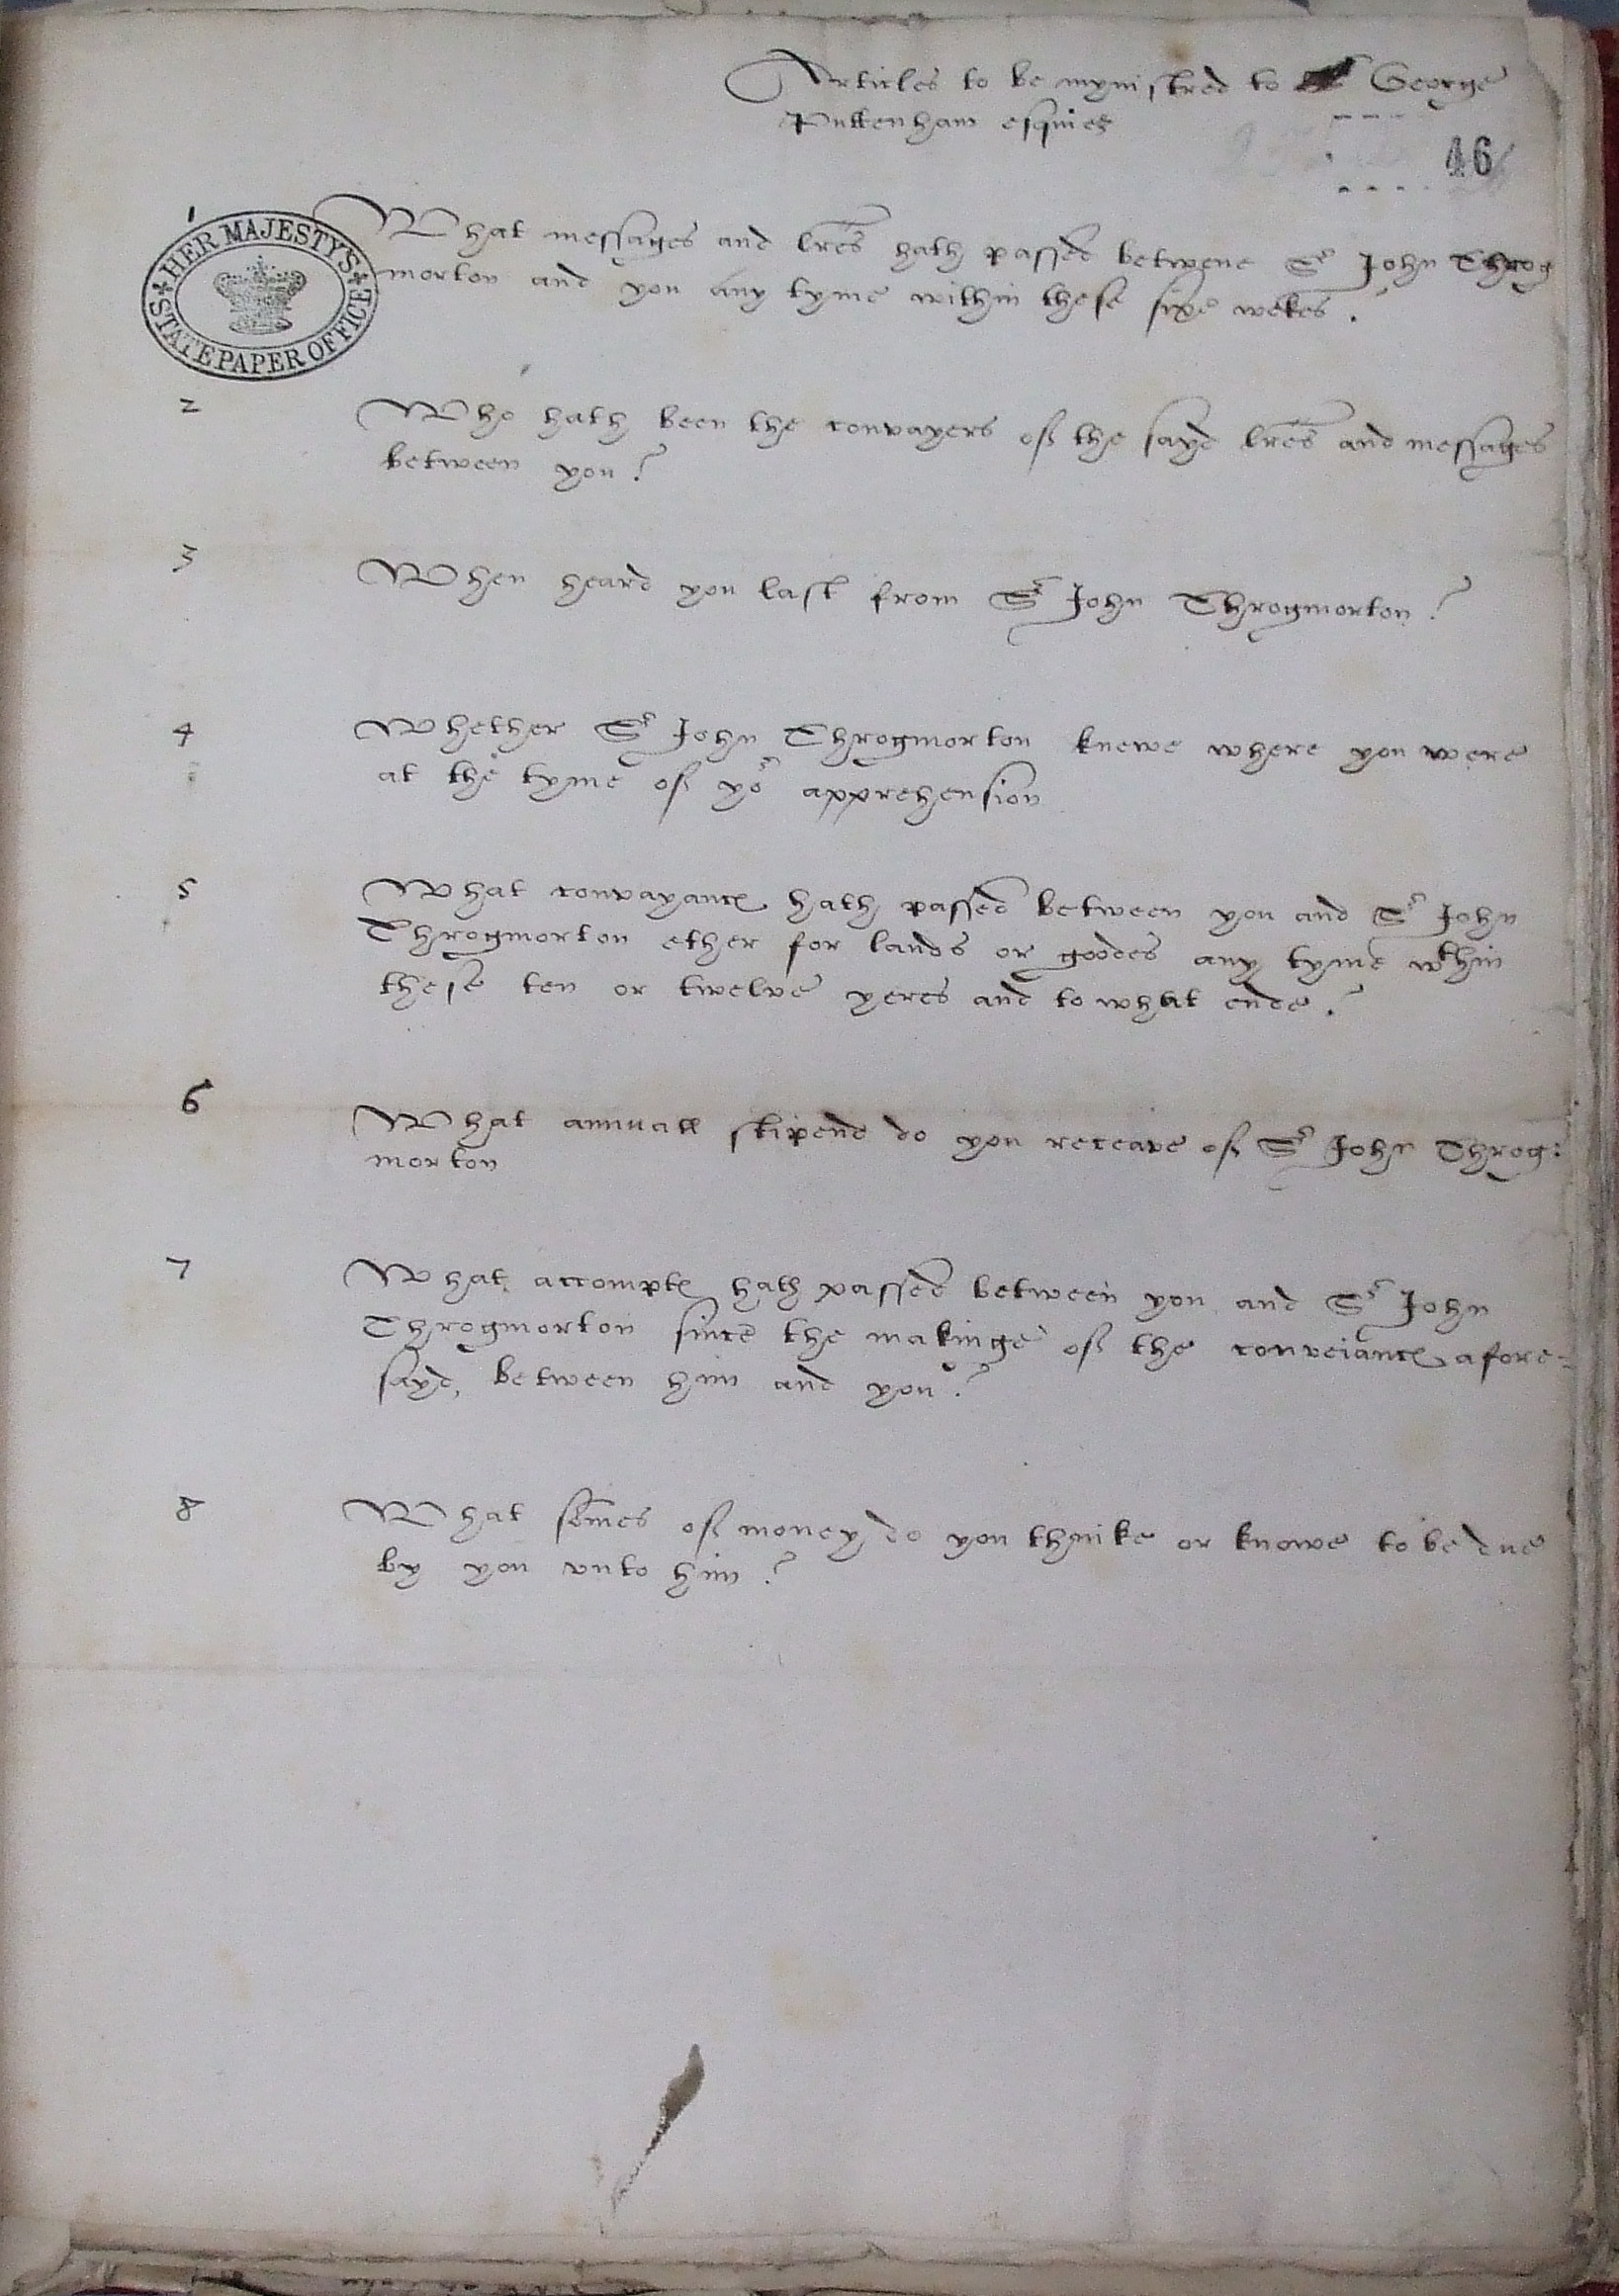 Articles to be mynistred to George
Puttenham esquier
46
1
HER MAJESTY'S STATE PAPER OFFICE
What messages and lres hath passed betwene Sr John Throg
morton and you any tyme within these sixe wekes.
2
Who hath been the convayers of the sayd lres and messages
between you?
3
When heard you last from Sr John Throgmorton?
4
Whether Sr John Throgmorton knewe where you were
at the tyme of yor apprehension
5
What convayances hath passed between you and Sr John
Throgmorton ether for lands or goodes any tyme wthin
these ten or twelve yeres and to what ende?
6
What annuall stipend do you receave of Sr John Throg:
morton
7
What accomptes hath passed between you and Sr John
Throgmorton since the makinge of the conveiances afore=
sayd, between him and you?
8
What somes of money do you thinke or knowe to be due
by you vnto him?